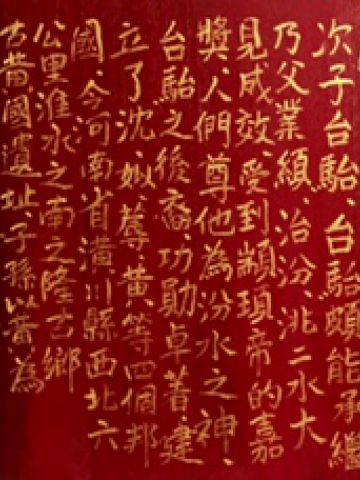 次子台駘、台駘頗能承繼
乃父業績、治汾、洮二水大
見成效、受到顓頊帝的嘉
獎、人們尊他為汾水之神、
台駘之後裔、功勛卓著、建
立了沈、姒、蓐、黃等四個邦
國、今河南省潢川縣西北六
公里淮水之南之隆古鄉
古黃國遺址、子孫以黃為